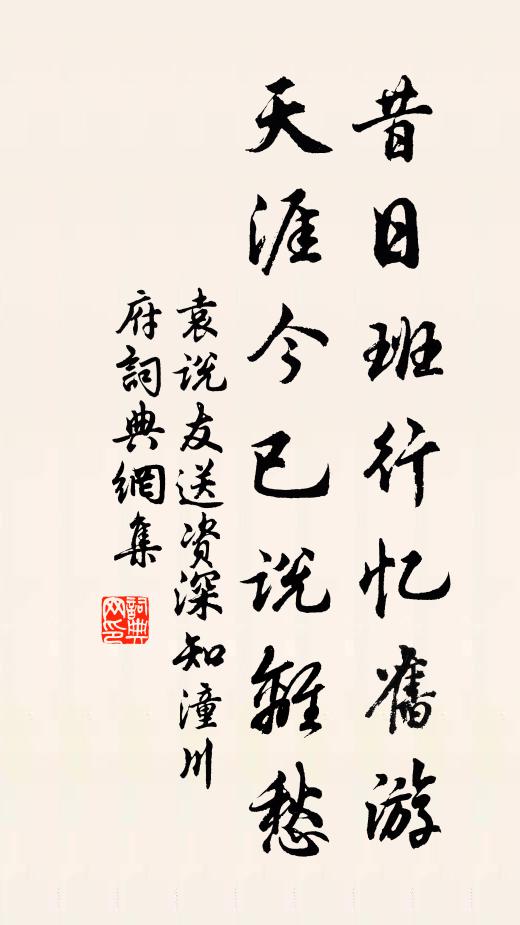 昔日班行忆舊游
天涯今已说離愁
袁说友送资深知潼川
府詞典網集
詞典网印